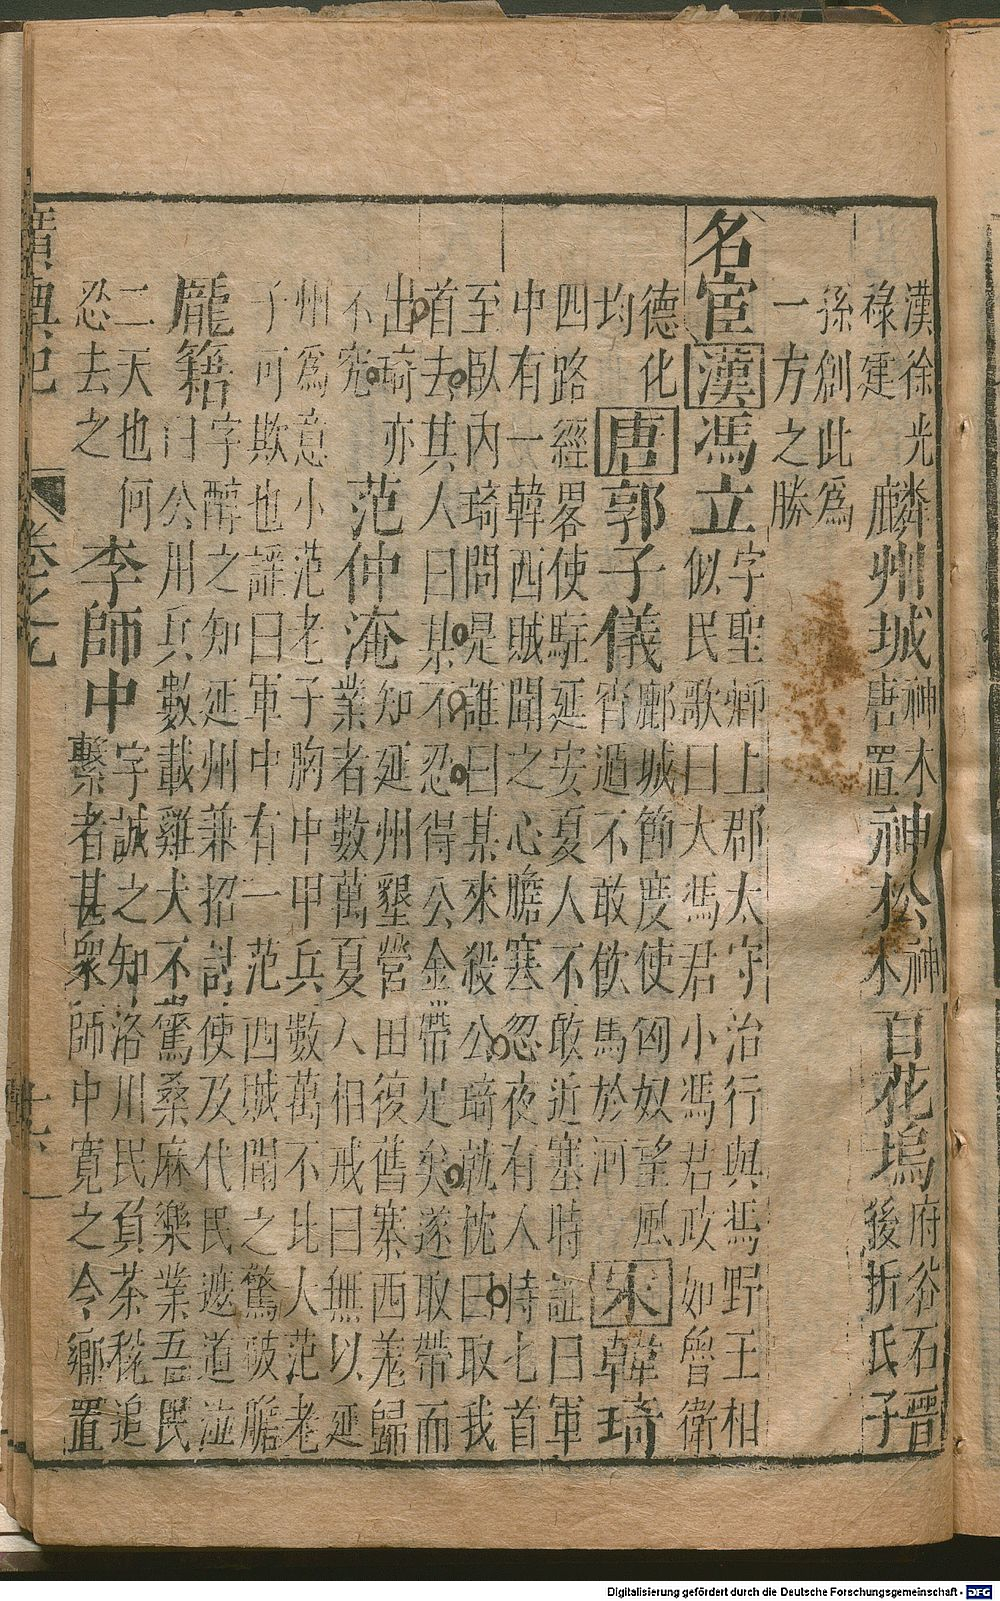 漢徐光 麟州城 神木 神松 神 百花塢 府谷石晉
祿建 唐置 木 後折氏子
孫創此爲
一方之勝
名宦 漢 馮立 字聖卿上郡太守治行與馮野王相
似民歌曰大馮君小馮君政如魯衛
德化 唐 郭子儀 鄜城節度使匈奴望風 宋 韓琦
均 宵遁不敢飲馬於河
四路經畧使駐延安夏人不敢近塞時謡曰軍
中有一韓西賊聞之心膽寒忽夜有人恃七首
至臥內琦問是誰曰某來殺公琦就枕曰取我
首去其人曰某不忍得公金帶足矣遂取帶而
出琦亦 范仲淹 知延州墾營田復舊寨西羌歸
不究 業者數萬夏人相戒曰無以延
州爲意小范老子胸中甲兵數萬不比大范老
子可欺也謡曰軍中有一范西賊聞之驚破膽
龎籍 字醇之知延州兼招討使及代民遮道泣
曰公用兵數載雞犬不驚桑麻樂業吾民
二天也何 李師中 字誠之知洛川民負茶稅追
忍去之 繫者甚衆師中寬之令鄉置
廣輿記 卷之九 十六
Digitalisierung gefördert durch die Deutsche Forschungsgemeinschaft - DFG